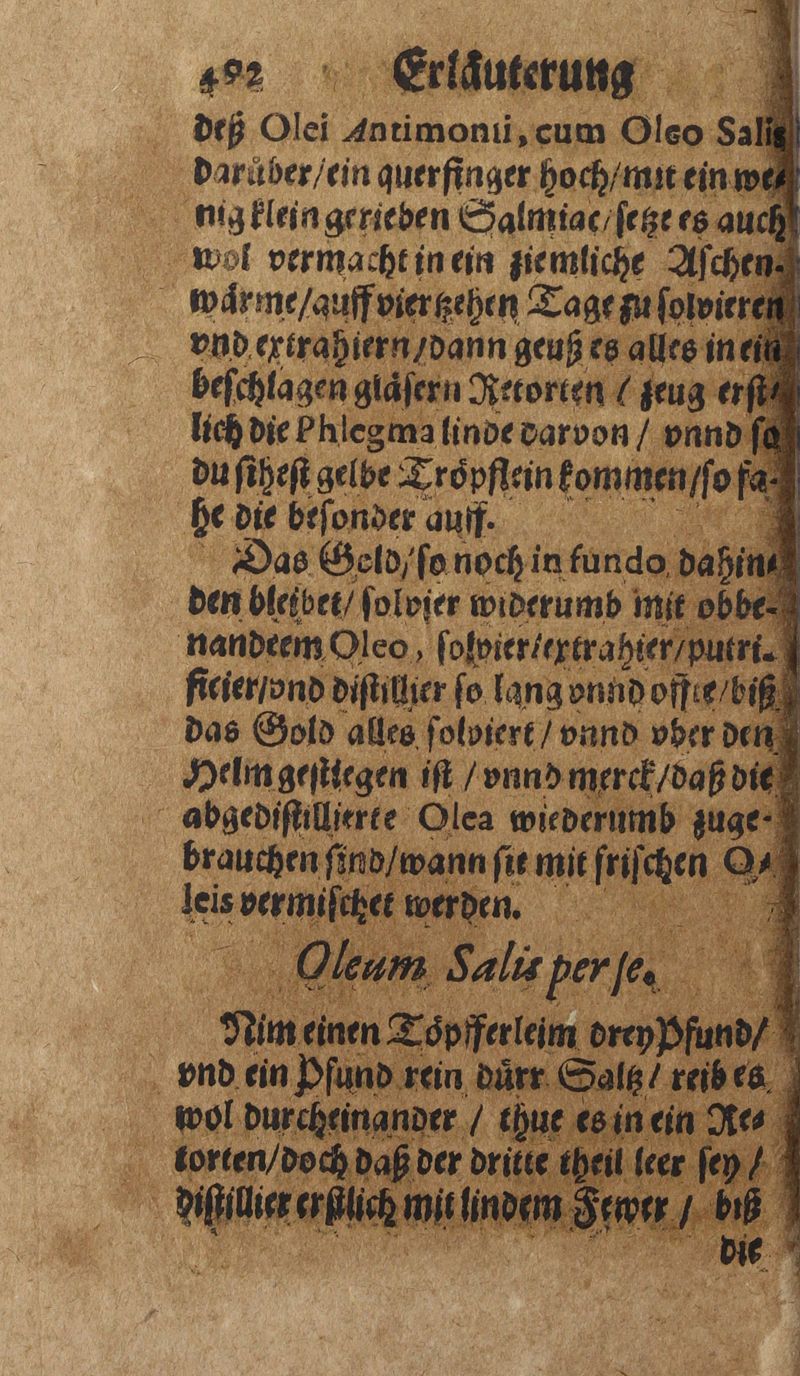 492 Erläuterung
deß Olei Antimonii, cum Oleo Salis
darüber/ein querfinger hoch/mit ein we-
nig klein gerieben Salmiac/setze es auch
wol vermacht in ein ziemliche Aschen-
wärme/auff viertzehen Tage zu solvieren
vnd extrahiern/dann geuß es alles in ein
beschlagen gläsern Retorten / zeug erst-
lich die Phlegma linde darvon / vnnd so
du sihest gelbe Tröpflein kommen/so fa-
he die besonder auff.
Das Gold/so noch in fundo dahin-
den bleibet/ solvier widerumb mit obbe-
nandtem Oleo, solvier/extrahier/putri-
ficier/vnd distillier so lang vnnd offte/biß
das Gold alles solviert / vnnd vber den
Helm gestiegen ist / vnnd merck/daß die
abgedistillierte Olea wiederumb zuge-
brauchen sind/wann sie mit frischen O-
leis vermischet werden.
Oleum Salis per se.
Nim einen Töpfferleim drey Pfund/
vnd ein Pfund rein dürr Saltz / reib es
wol durcheinander / thue es in ein Re-
torten/doch daß der dritte theil leer sey /
distillier erstlich mit lindem Fewer / biß
die